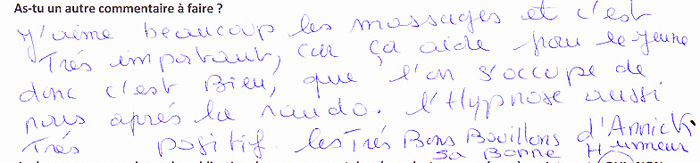 As-tu un autre commentaire à faire ?
J'aime beaucoup les massages et c'est
Très important, car ça aide pour le Jeune
donc c'est Bien, que l'on s'occupe de
nous après la rando. l'Hypnose aussi
Très positif. les Très Bons Bouillons d'Annick
sa Bonne Humeur